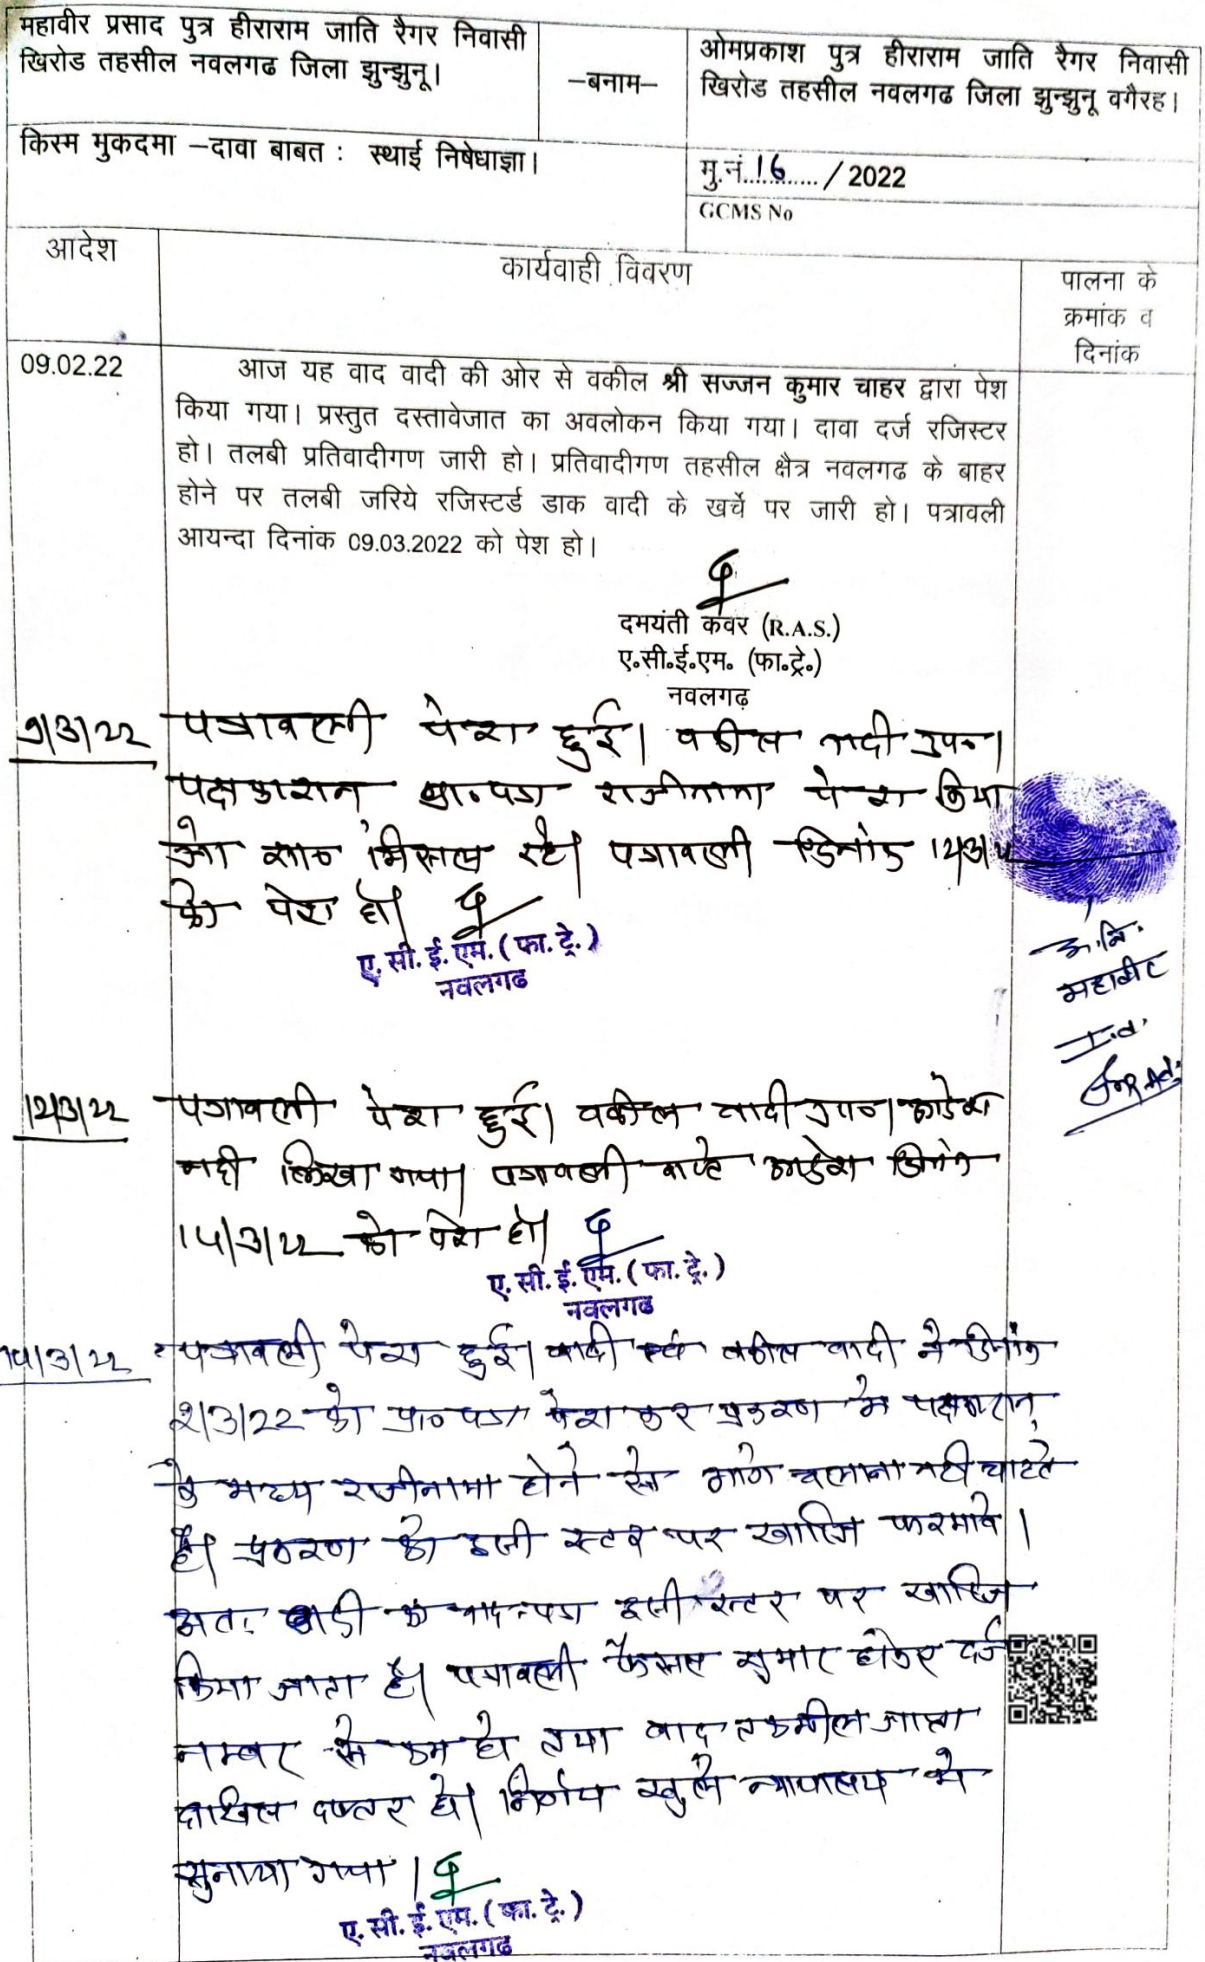 महावीर प्रसाद पुत्र हीराराम जाति रैगर निवासी
खिरोड तहसील नवलगढ जिला झुन्झुनू।
–बनाम–
ओमप्रकाश पुत्र हीराराम जाति रैगर निवासी
खिरोड तहसील नवलगढ जिला झुन्झुनू वगैरह।
किस्म मुकदमा –दावा बाबत : स्थाई निषेधाज्ञा।
मु.नं..16......... / 2022
GCMS No
आदेश
कार्यवाही विवरण
पालना के
क्रमांक व
दिनांक
09.02.22
आज यह वाद वादी की ओर से वकील श्री सज्जन कुमार चाहर द्वारा पेश
किया गया। प्रस्तुत दस्तावेजात का अवलोकन किया गया। दावा दर्ज रजिस्टर
हो। तलबी प्रतिवादीगण जारी हो। प्रतिवादीगण तहसील क्षैत्र नवलगढ के बाहर
होने पर तलबी जरिये रजिस्टर्ड डाक वादी के खर्चे पर जारी हो। पत्रावली
आयन्दा दिनांक 09.03.2022 को पेश हो।
दमयंती कंवर (R.A.S.)
ए.सी.ई.एम. (फा.ट्रे.)
नवलगढ़
9/3/22 पत्रावली पेश हुई। वकील वादी उप०।
पक्षकारान प्रा०पत्र राजीनामा पेश किया
जो शा० मिसल रहे। पत्रावली दिनांक 12/3/22
को पेश हो।
ए. सी. ई. एम. ( फा. ट्रे. )
नवलगढ
अ.नि.
महावीर
I.d.
12/3/22 पत्रावली पेश हुई। वकील वादी उप०। आदेश
नही लिखा गया। पत्रावली वास्ते आदेश दिनांक
14/3/22 को पेश हो।
ए. सी. ई. एम. ( फा. ट्रे. )
नवलगढ
14/3/22 पत्रावली पेश हुई। वादी एवं वकील वादी ने दिनांक
9/3/22 को प्रा०पत्र पेश कर प्रकरण मे पक्षकारान
के मध्य राजीनामा होने से आगे चलाना नही चाहते
है। प्रकरण को इसी स्टेज पर खारिज फरमावे।
अतः वादी का वाद-पत्र इसी स्टेज पर खारिज
किया जाता है। पत्रावली फैसल शुमार होकर दर्ज
नम्बर से कम हो तथा बाद तकमील जाप्ता
दाखिल दफ्तर हो। निर्णय खुले न्यायालय मे
सुनाया गया।
ए. सी. ई. एम. ( फा. ट्रे. )
नवलगढ